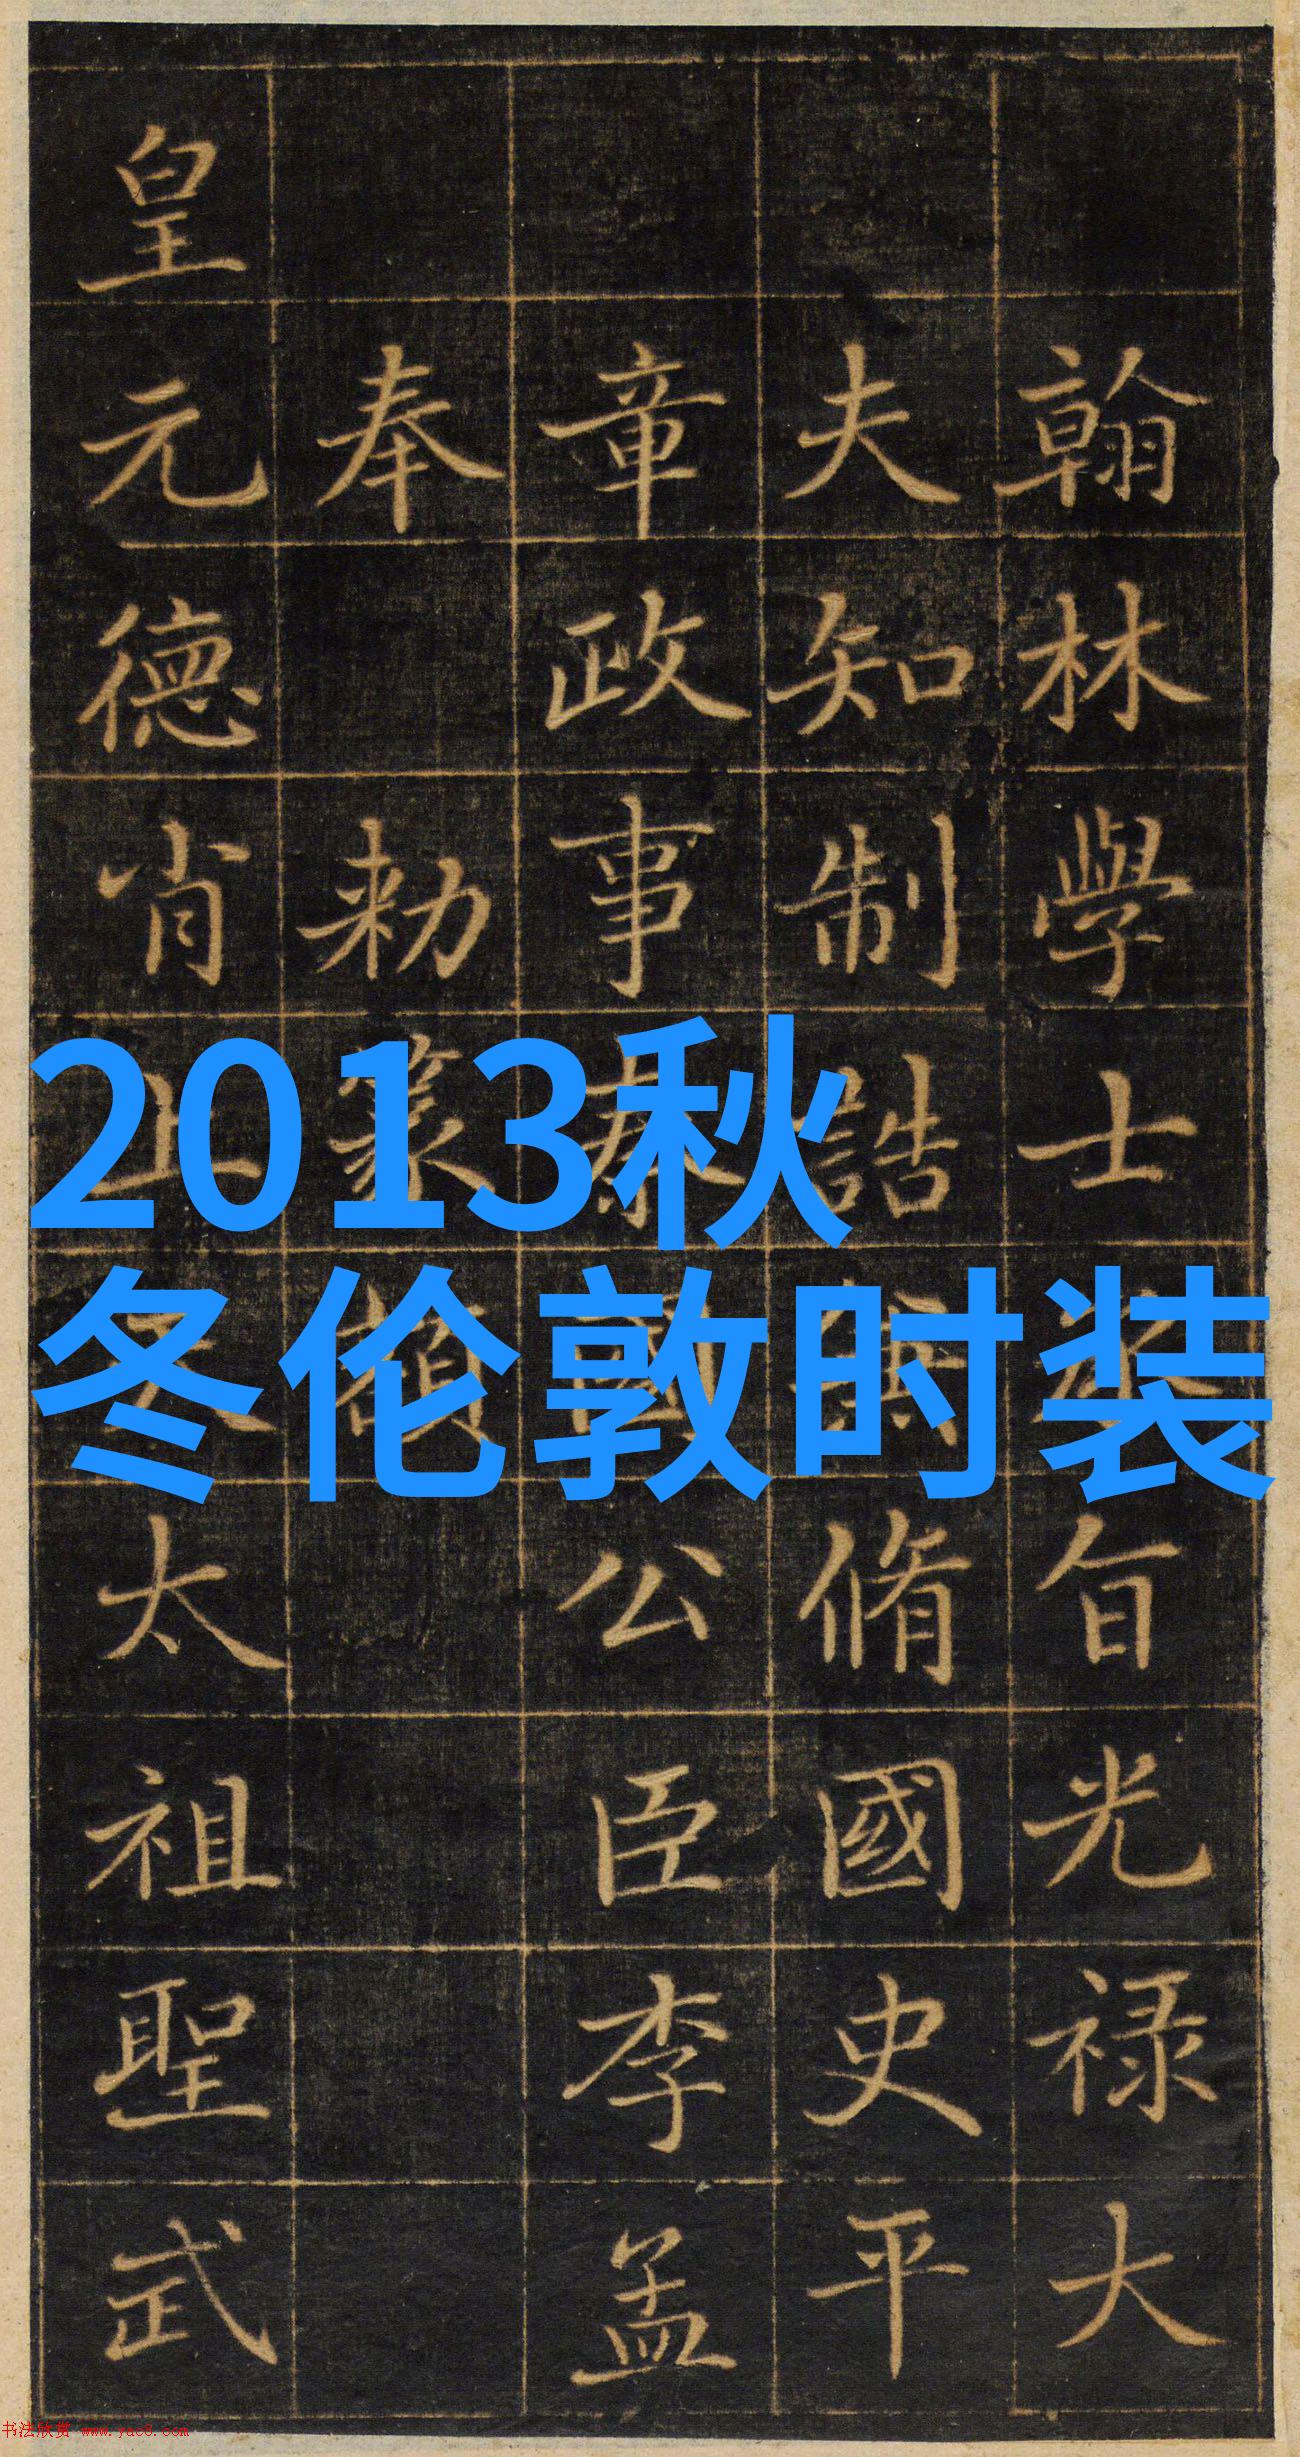 翰林學士旨光禄大
夫知制誥脩國史平
章政事秦國公臣李孟
奉勅篆額
皇元德肖上太祖聖武
2013秋
冬伦敦时装
书法欣赏 www.yac8.com